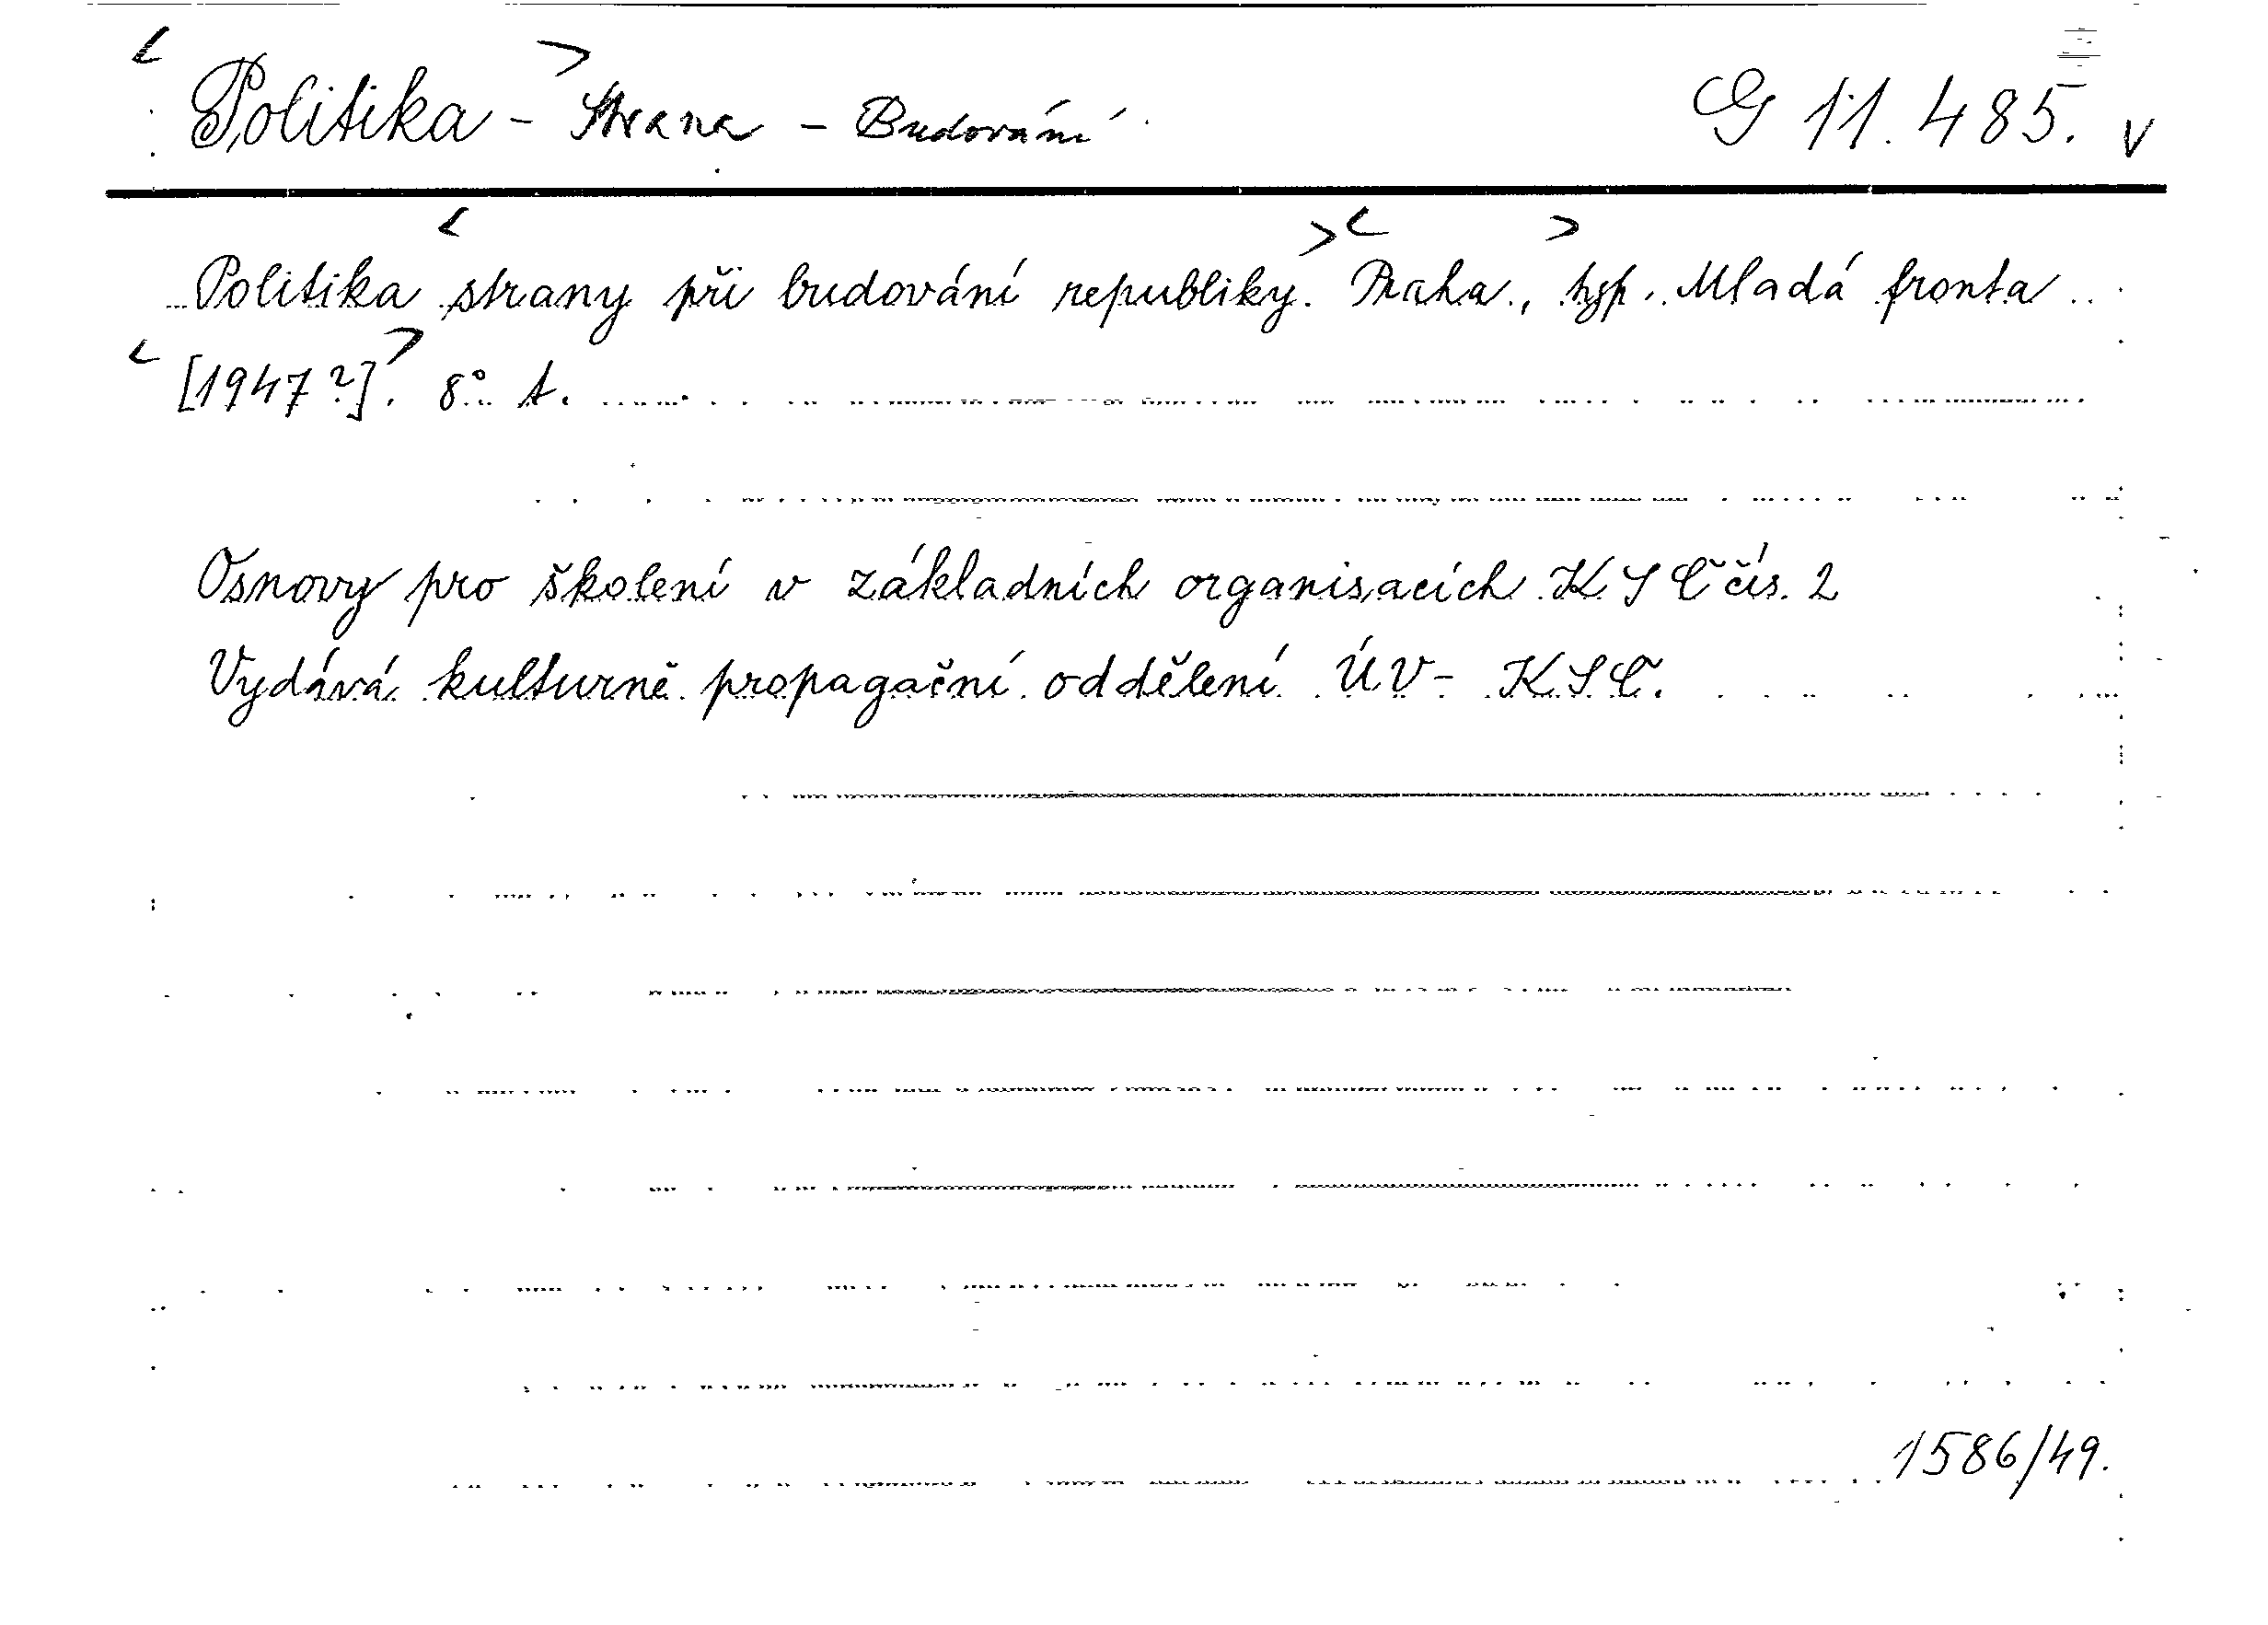 Politika - Strana - Budování G 11.485. v
Politika strany při budování republiky. Praha, typ. Mladá fronta
[1947?]. 8° A.
Osnovy pro školení v základních organisacích KSČ čís. 2
Vydává kulturně propagační oddělení ÚV - KSČ.
1586/49.